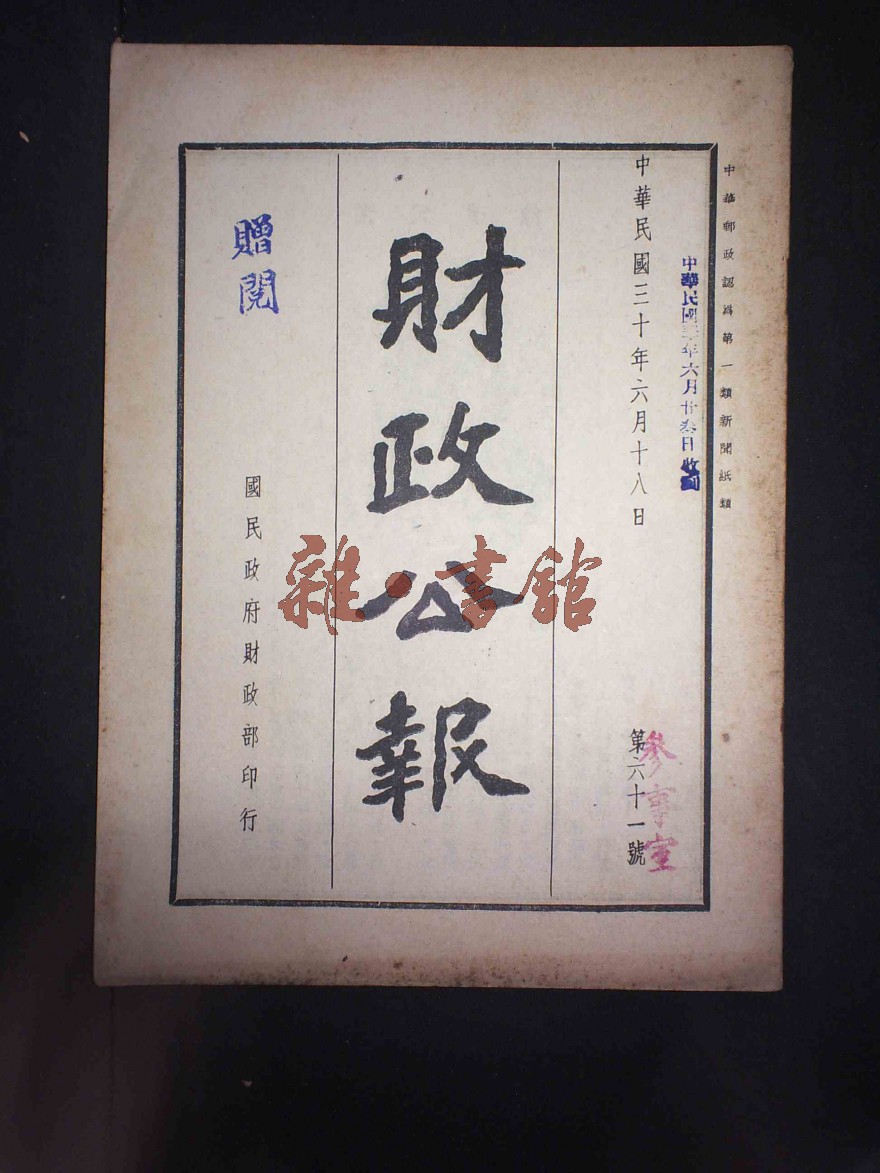 中華郵政認爲第一類新聞紙類
中華民國三十年六月廿叁日收到
中華民國三十年六月十八日
第六十一號
參事室
財政公報
贈閱
國民政府財政部印行
雜·書館